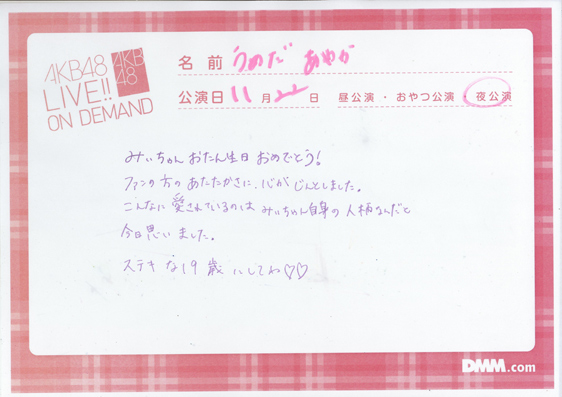 AKB48
LIVE!!
ON DEMAND
AKB
48
名前 うめだ あやか
公演日 11月22日 昼公演・おやつ公演・夜公演
みぃちゃん おたん生日 おめでとう!
ファンの方の あたたかさに、心が じんとしました。
こんなに 愛されているのは みぃちゃん自身の 人柄なんだと
今日思いました。
ステキな19歳にしてね♡♡
DMM.com